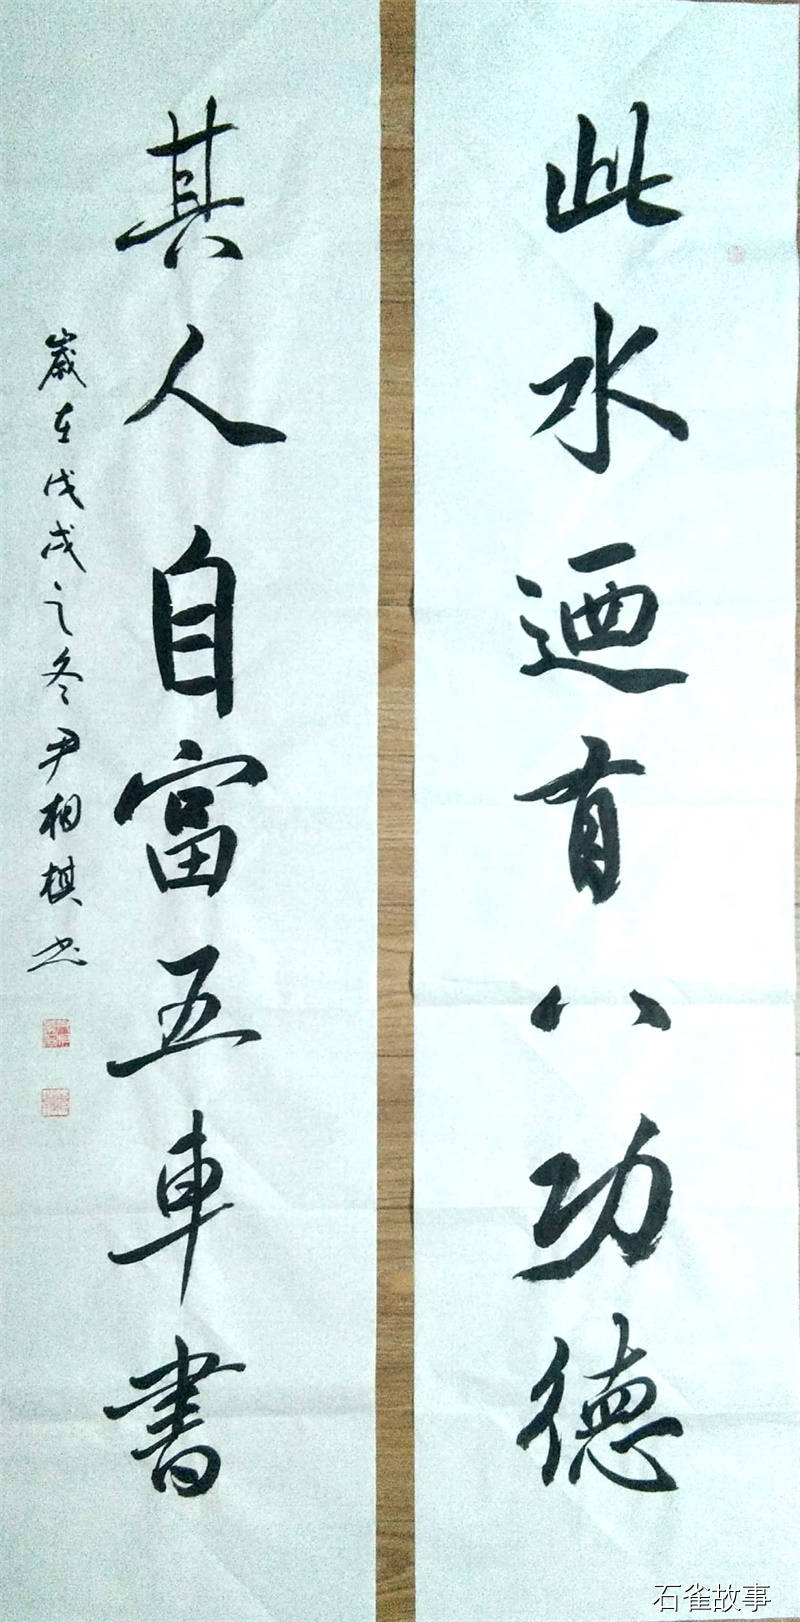 此水迺有八功德
其人自富五車書
歲在戊戌之冬尹相棋书
石雀故事